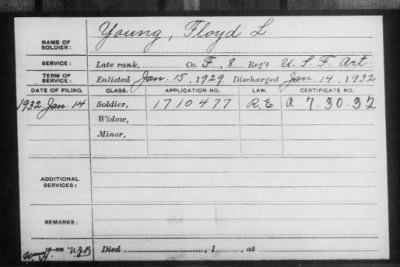 NAME OF SOLDIER: Young, Floyd L
SERVICE: Late rank, Co. F, 8 Reg't U. S. F. Art.
TERM OF SERVICE: Enlisted Jan. 15, 1929 Discharged Jan. 14, 1932
DATE OF FILING. CLASS. APPLICATION NO. LAW. CERTIFICATE NO.
1932 Jan. 14 Soldier, 1710477 R.E. A 7 30-32
Widow,
Minor,
ADDITIONAL SERVICES:
REMARKS:
Died , 1 , at